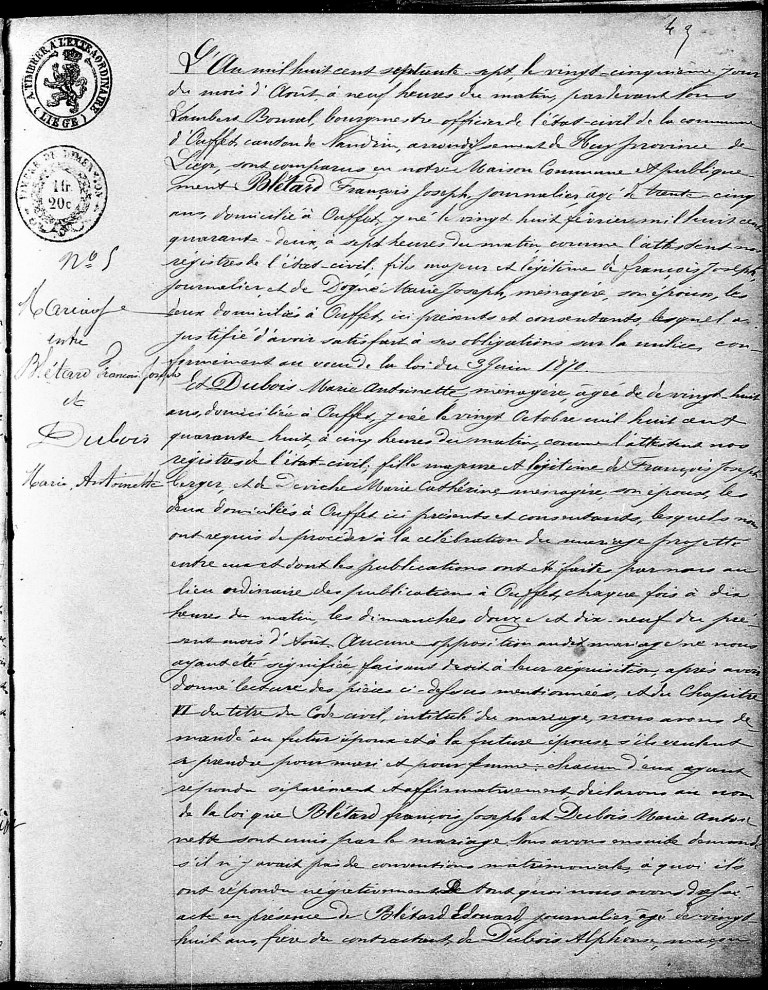 43
A TIMBRER A L'EXTRAORDINAIRE
(LIÉGE)
1 fr
20c
N° 5
Mariage
entre
Blétard François Joseph
et
Dubois
Marie Antoinette
L'An mil huit cent septante-sept, le vingt-cinquième jour
du mois d'Août, à neuf heures du matin, pardevant Nous
Lambert Bomal, bourgmestre officier de l'état-civil de la commune
d'Ouffet, canton de Nandrin, arrondissement de Huy, province de
Liège, sont comparus en notre Maison Commune et publique
ment Blétard François Joseph, journalier, âgé de trente-cinq
ans, domicilié à Ouffet, y né le vingt huit février mil huit cent
quarante-deux, à sept heures du matin comme l'attestent nos
registres de l'état-civil; fils majeur et légitime de françois Joseph,
journalier, et de Dogné Marie Joseph, ménagère, son épouse, les
deux domiciliés à Ouffet, ici présents et consentants, lequel a
justifié d'avoir satisfait à ses obligations sur la milice, con-
formément au vœu de la loi du 3 Juin 1870.
Et Dubois Marie Antoinette, ménagère, âgée de vingt huit
ans, domiciliée à Ouffet, y née le vingt Octobre mil huit cent
quarante-huit, à cinq heures du matin, comme l'attestent nos
registres de l'état-civil; fille majeure et légitime de François Joseph
berger, et de Deviche Marie Cathérine, ménagère, son épouse, les
deux domiciliés à Ouffet ici présents et consentants, lesquels nous
ont requis de procéder à la célébration du mariage projetté
entre eux et dont les publications ont été faites par nous au
lieu ordinaire des publications à Ouffet, chaque fois à dix
heures du matin, les dimanches douze et dix-neuf du pré
sent mois d'Août. Aucune opposition audit mariage ne nous
ayant été signifiée, faisant droit à leur réquisition, après avoir
donné lecture des pièces ci-dessus mentionnées, et du Chapitre
VI du titre du Code civil, intitulé du mariage, nous avons de
mandé au futur époux et à la future épouse s'ils veulent
se prendre pour mari et pour femme: chacun d'eux ayant
répondu séparément et affirmativement, déclarons au nom
de la loi que Blétard françois Joseph et Dubois Marie Antoi
nette sont unis par le mariage. Nous avons ensuite demandé
s'il n'y avait pas de conventions matrimoniales, à quoi ils
ont répondu négativement. De tout quoi nous avons dressé
acte en présence de Blétard Edouard, journalier, âgé de vingt
huit ans, frère du contractant, de Dubois Alphonse, maçon